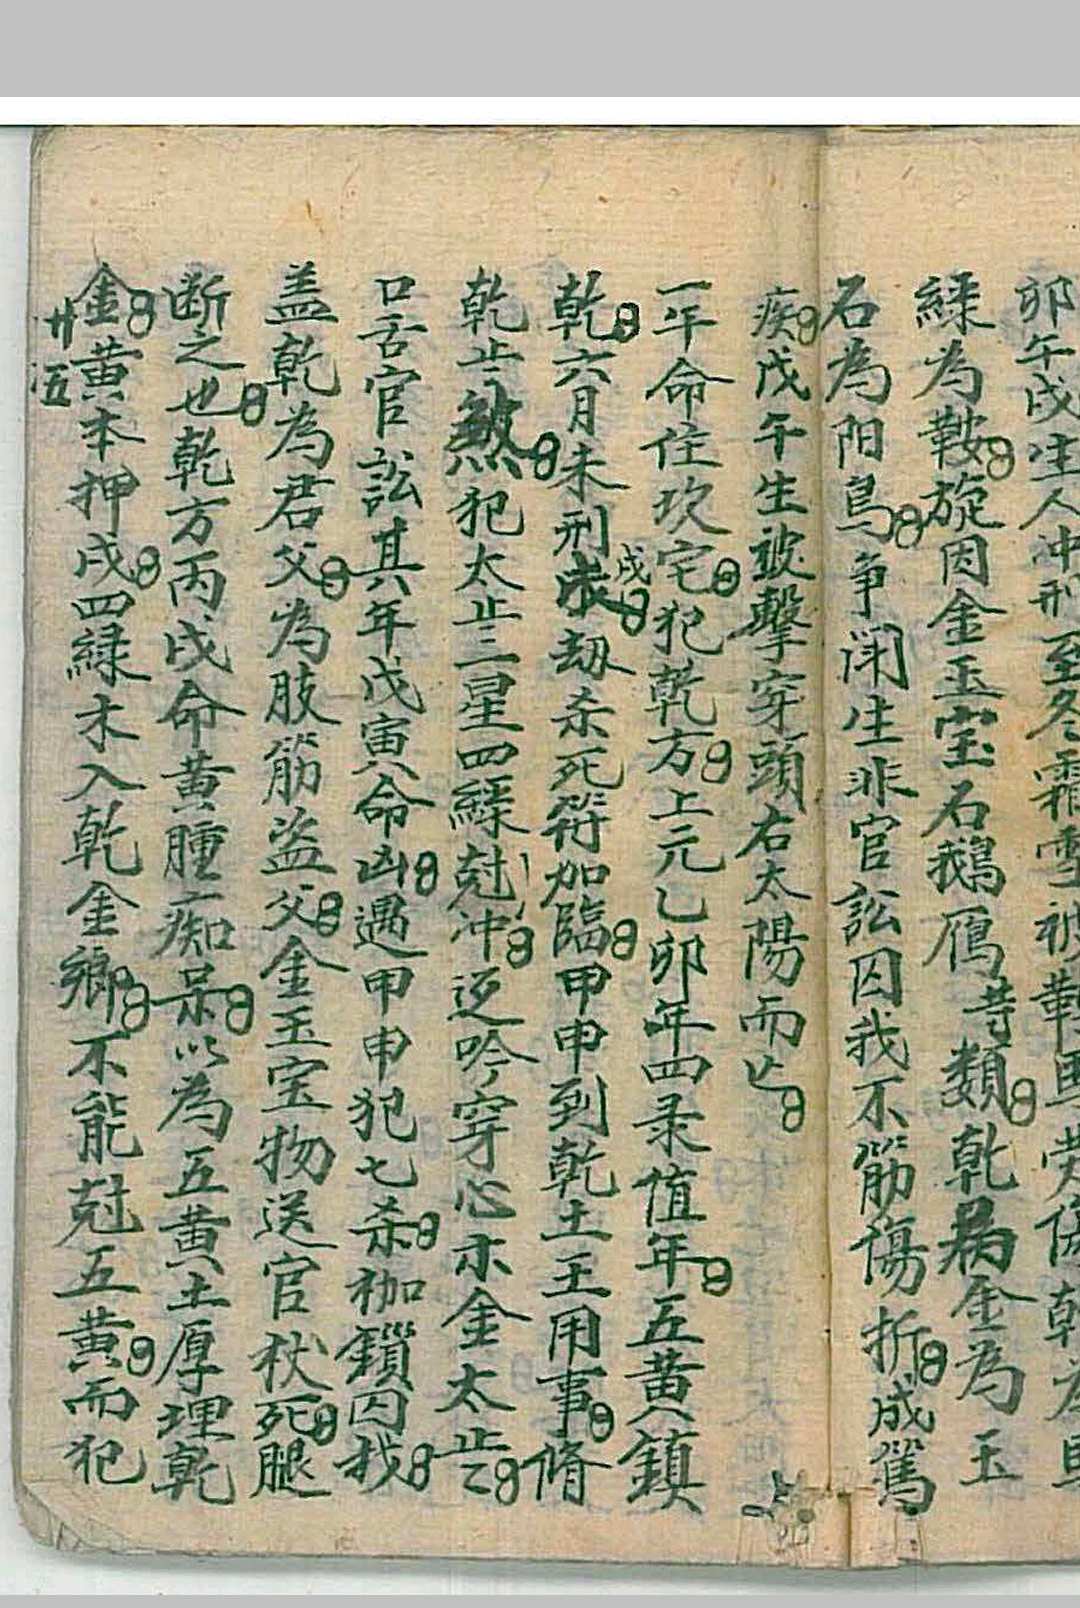 卯午戌生人冲刑至冬霜雪被鞍馬劳傷乾為馬
緑為鞍旋因金玉宝石鵝雁等類乾病金為玉
石為阳鳥争闹生非官訟囚我不筋傷折成篤
疾戊午生被擊穿頭右太陽而止
一午命住坎宅犯乾方上元乙卯年四录值年五黄鎮
乾六月未刑戌劫杀死符加臨甲申到乾土王用事脩
乾止煞犯太止三星四緑尅冲逆吟穿心亦金太止
口舌官訟其年戊寅命凶遇甲申犯七杀枷鎖囚找
盖乾為君父為肢筋盗父金玉宝物送官杖死腿
断之也乾方丙戌命黄腫痴呆以為五黄土厚埋乾
金黄本押戌四緑木入乾金鄉不能尅五黄而犯
廿五